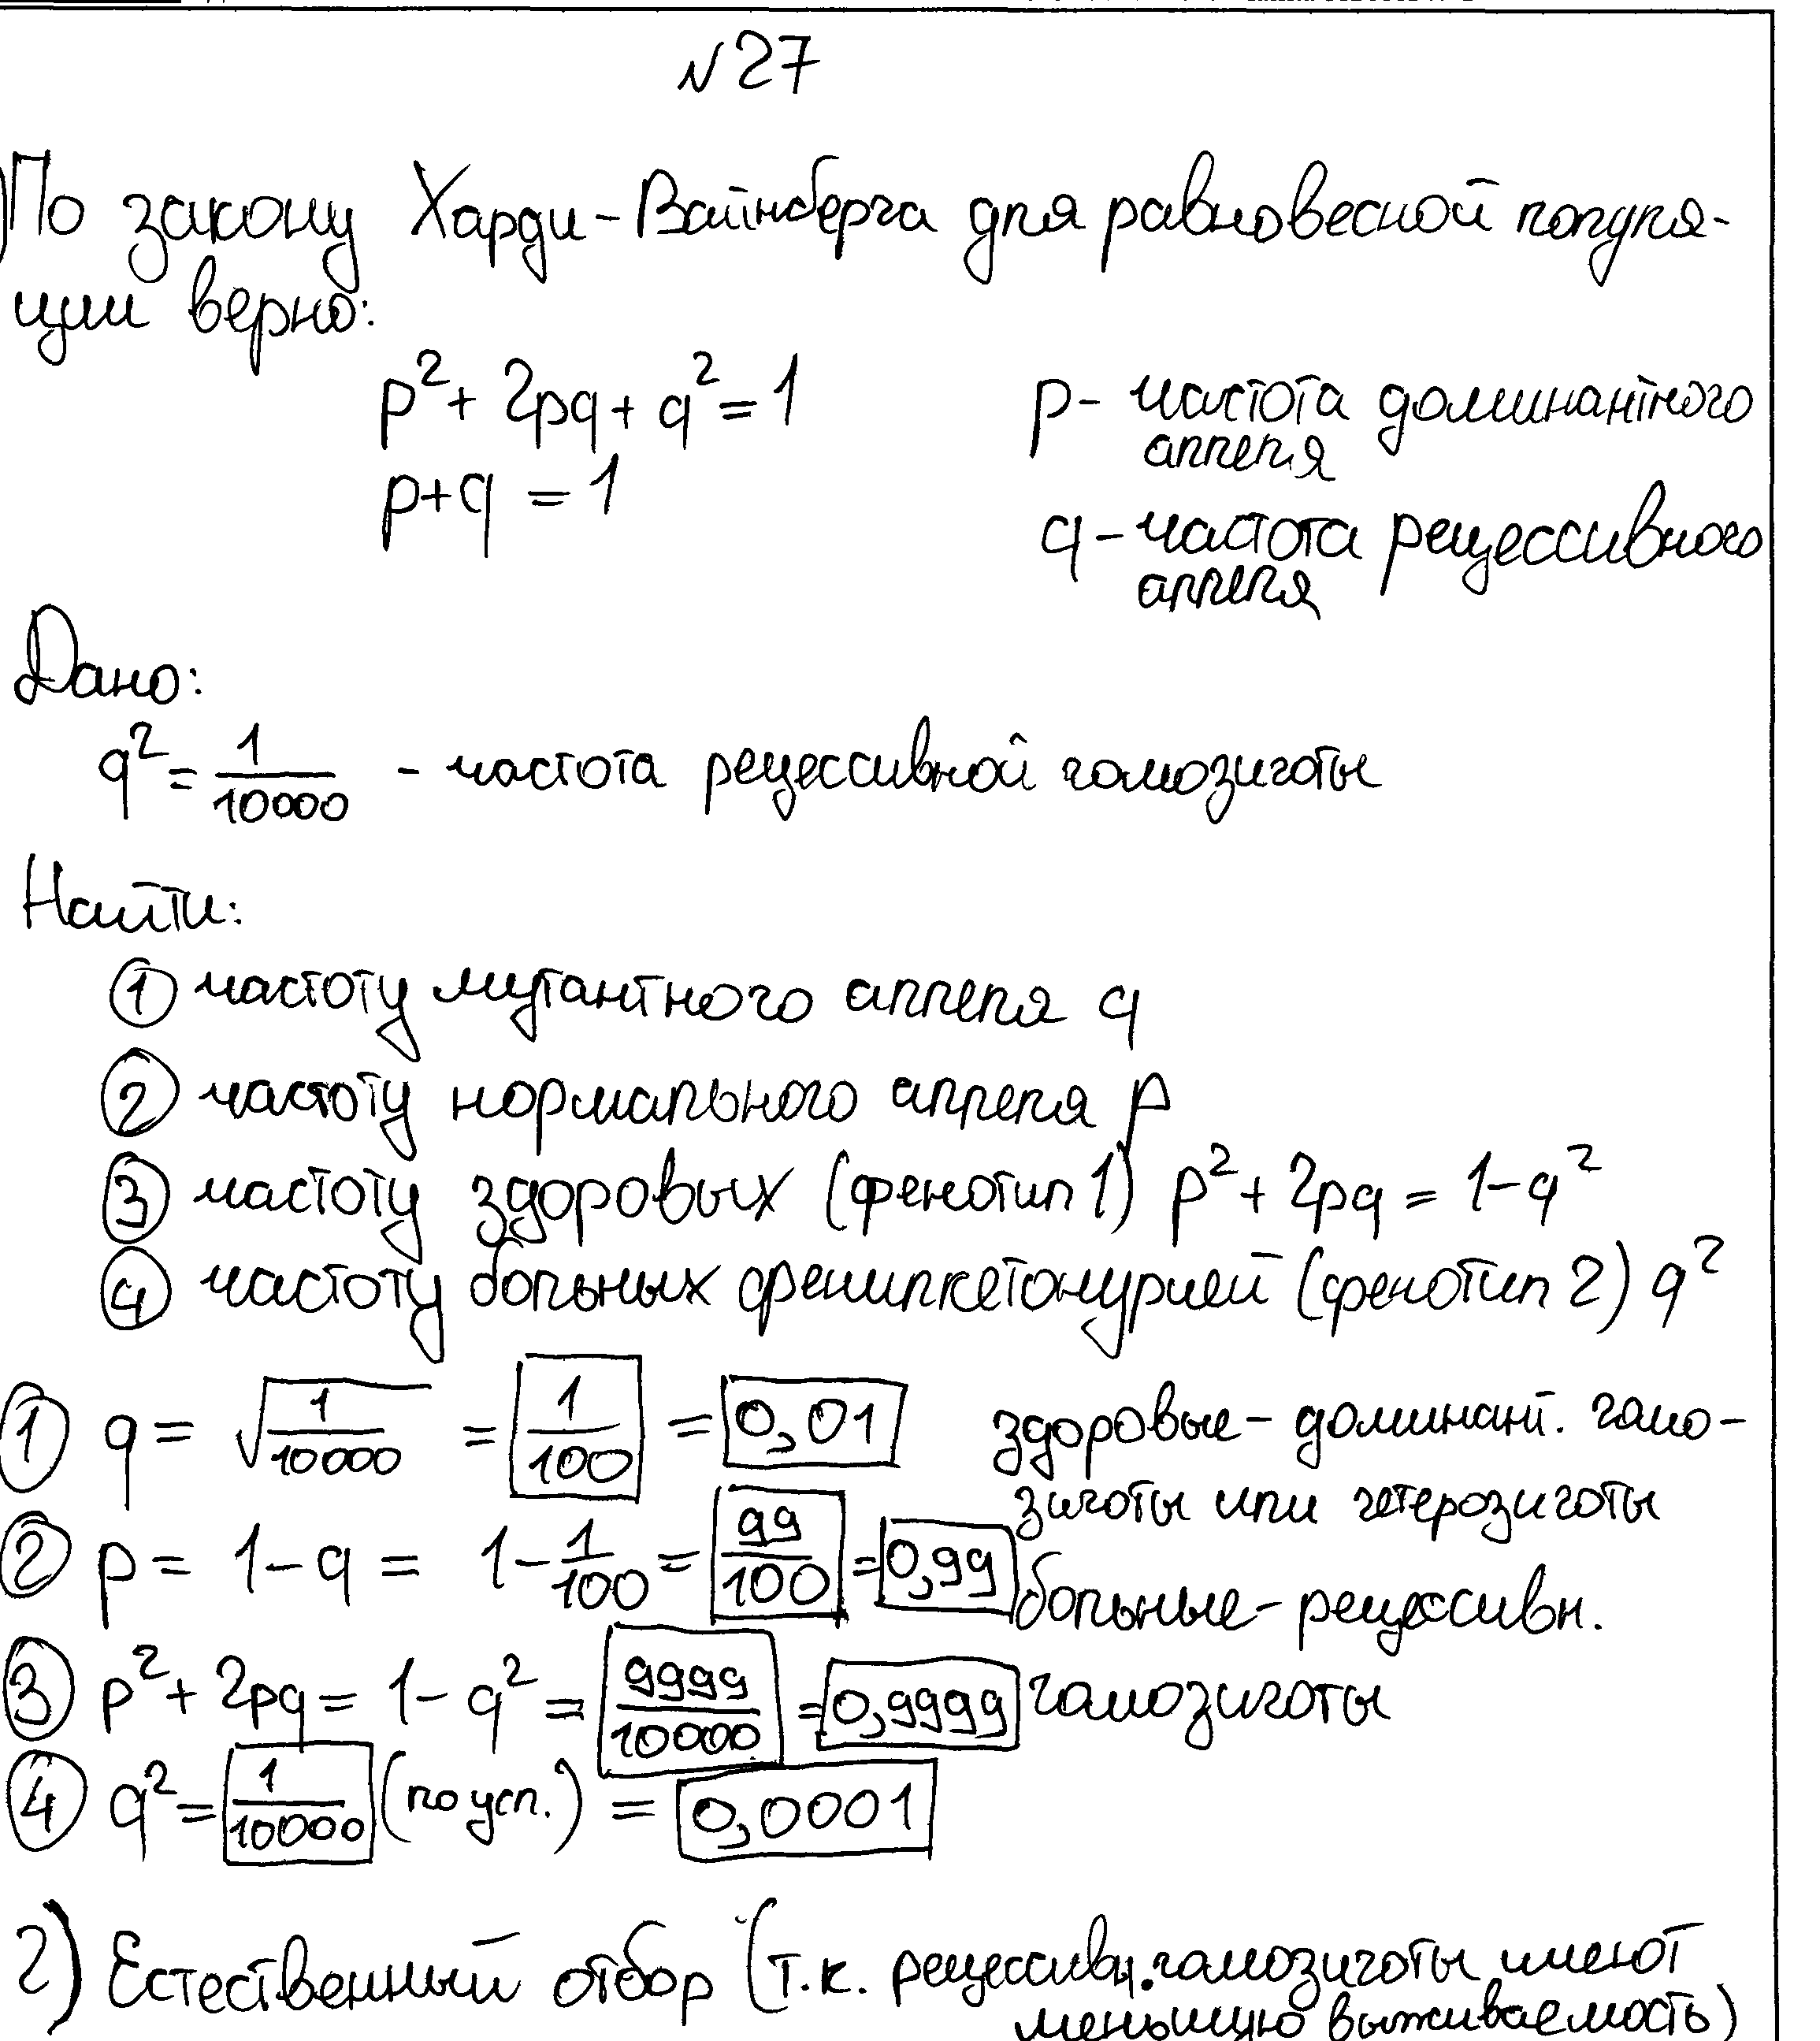 №27
1) По закону Харди-Вайнберга для равновесной популя-
ции верно:
p² + 2pq + q² = 1
p+q = 1
p - частота доминантного
аллеля
q - частота рецессивного
аллеля
Дано:
q² = 1/10000 - частота рецессивной гомозиготы
Найти:
① частоту мутантного аллеля q
② частоту нормального аллеля p
③ частоту здоровых (фенотип 1) p² + 2pq = 1-q²
④ частоту больных фенилкетонурией (фенотип 2) q²
① q = √(1/10000) = 1/100 = 0,01
② p = 1-q = 1 - 1/100 = 99/100 = 0,99
③ p² + 2pq = 1 - q² = 9999/10000 = 0,9999
④ q² = 1/10000 (по усл.) = 0,0001
здоровые - доминант. гомо-
зиготы или гетерозиготы
больные - рецессивн.
гомозиготы
2) Естественный отбор (т.к. рецессивн. гомозиготы имеют
меньшую выживаемость)